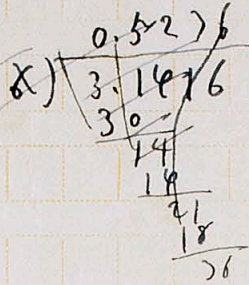 0.5236
6)3.1416
30
14
12
21
18
36